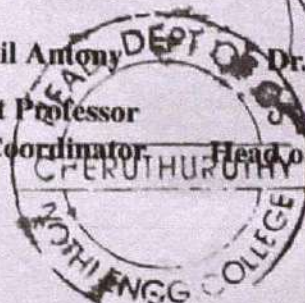 il Antony Dr.
t Professor
Coordinator Head o
HEAD DEPT OF CS
CHERUTHURUTHY
JYOTHI ENGG COLLEGE